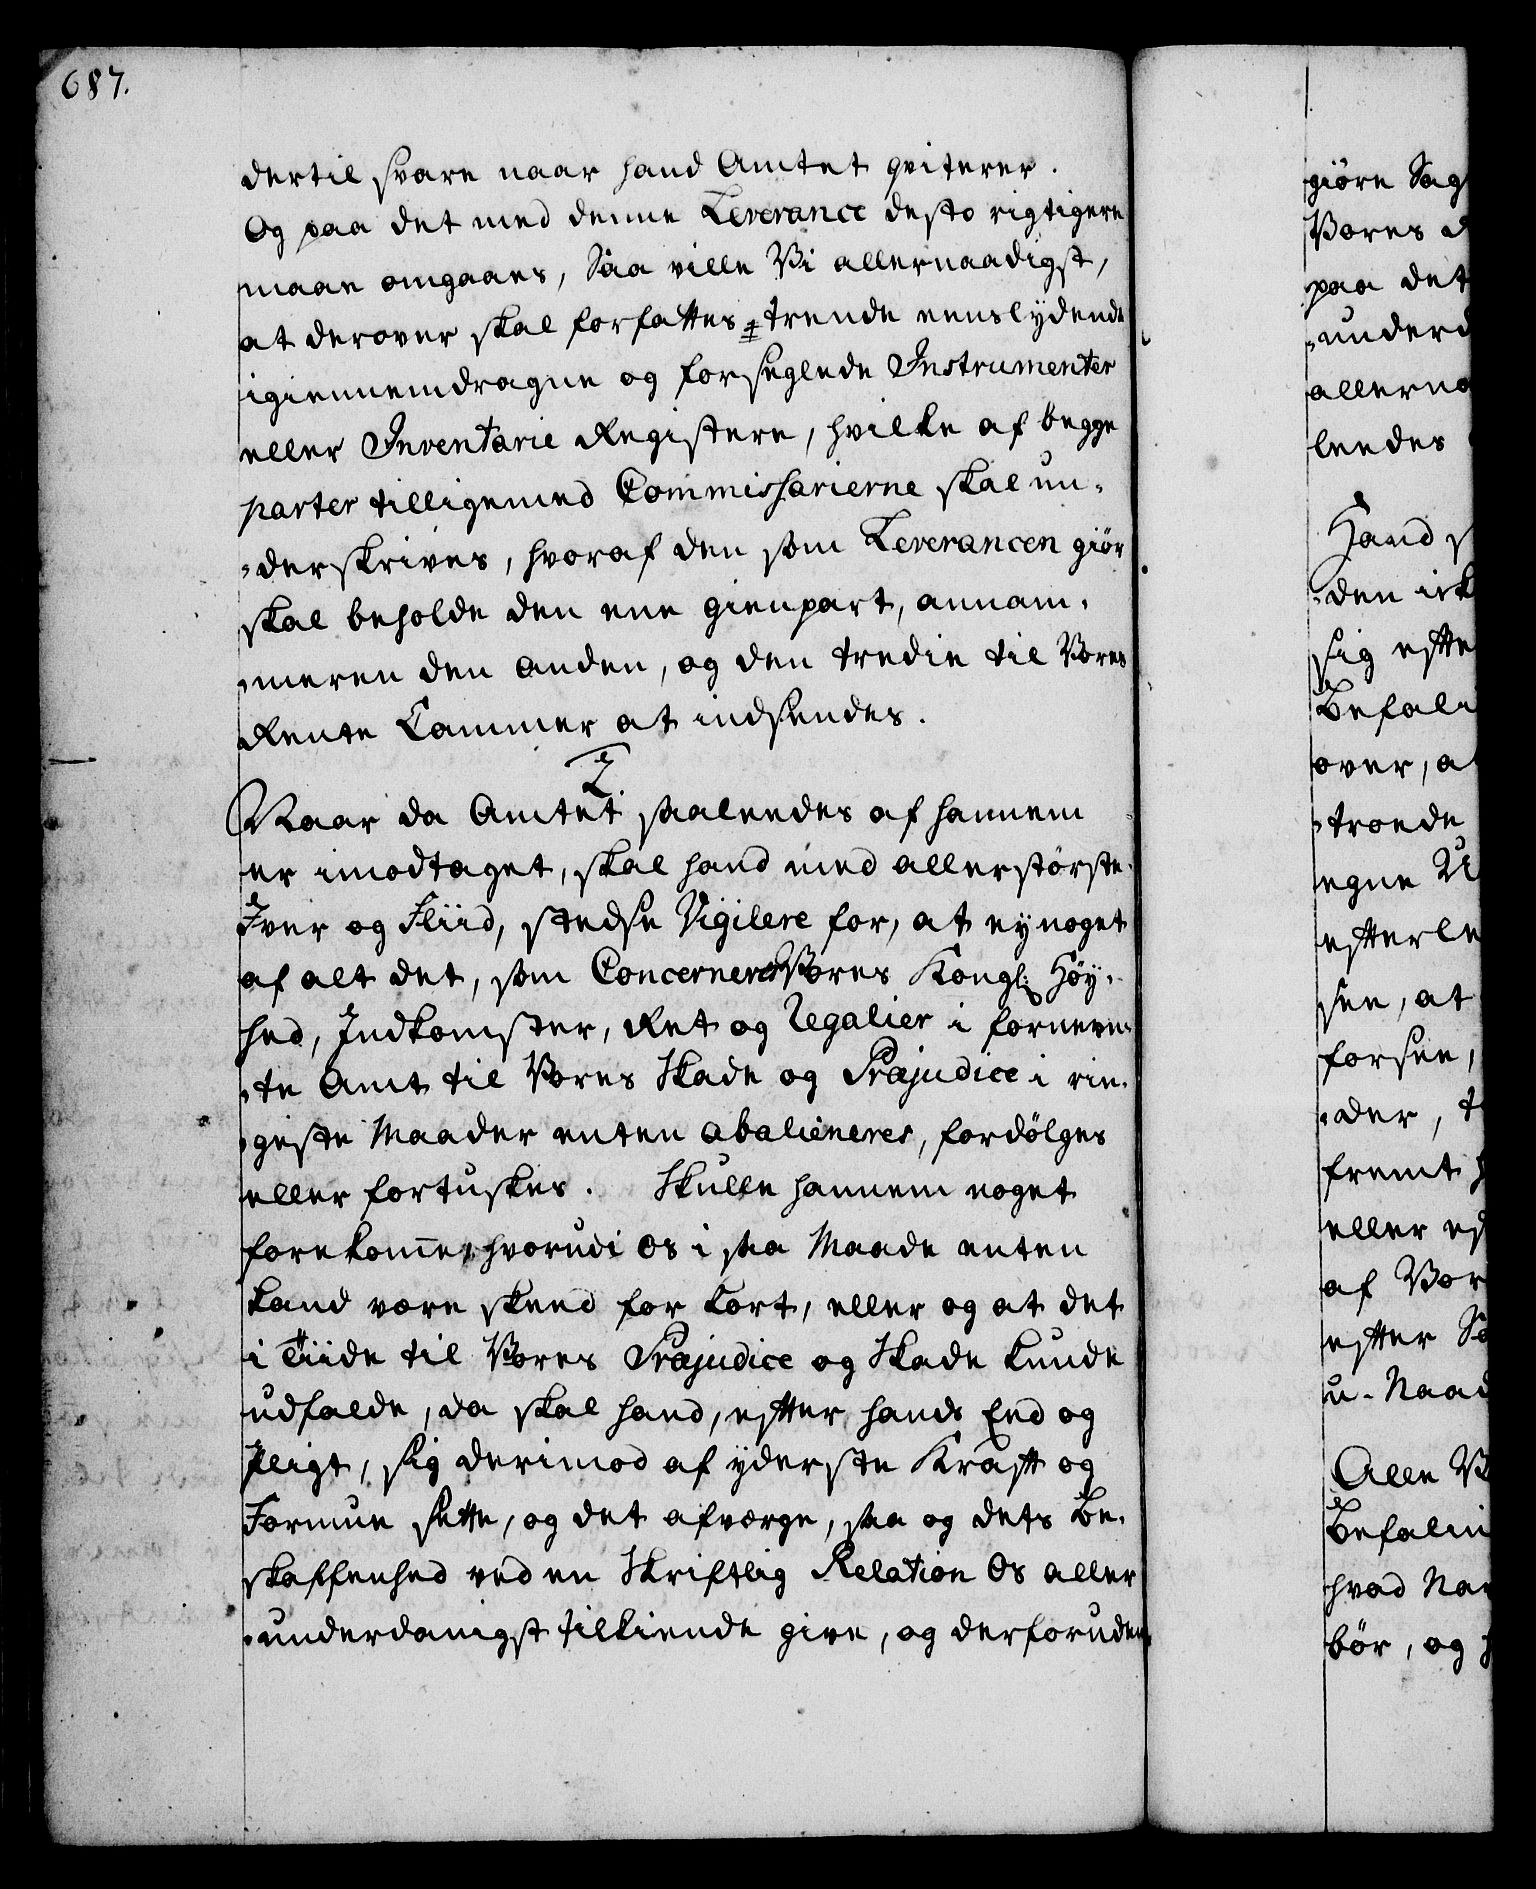 687.
dertil svare naar hand Amtet qviterer.
Og paa det med denne Leverance desto rigtigere
maae omgaaes, Saa ville Vi allernaadigst,
at derover skal forfattes trende eenslydende
igiennemdragne og forseglede Instrumenter
eller Inventarie Registere, hvilke af begge
parter tilligemed Commissarierne skal un-
derskrives, hvoraf den som Leverancen giør
skal beholde den ene gienpart, annam-
meren den anden, og den tredie til Vores
Rente Cammer at indsendes.
2.
Naar da Amtet saaleedes af hannem
er imodtaget, skal hand med allerstørste
Iver og Fliid, stedse Vigilere for, at ey noget
af alt det, som Concernerer Vores Kongl: Høy-
hed, Indkomster, Ret og Regalier i forneven-
te Amt til Vores Skade og Præjudice i rin-
geste Maader enten abalieneres, fordølges
eller fortuskes. Skulle hannem noget
forekomme, hvorudi Os i saa Maade enten
kand være skeed for kort, eller og at det
i Tiide til Vores Præjudice og Skade kunde
udfalde, da skal hand, efter hands Eed og
Pligt, sig derimod af yderste Krafft og
Formue sette, og det afværge, saa og dets Be-
skaffenhed ved en Skriftlig Relation Os aller
underdanigst tilkiende give, og derforuden
giøre Sag
Vores
paa det
underd
allerna
leedes
Hand
den
sig effte
Befali
over, a
troede
egne
efterle
see, at
forsee,
der,
fremt
eller
af Vor
efter
u-Naad
Alle V
Befalin
hvad Na
bør, og